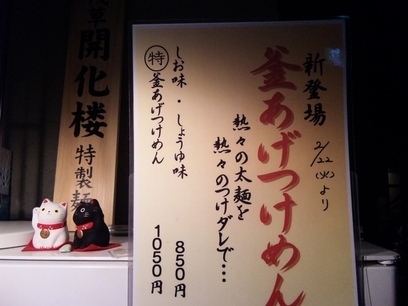 新登場
2/22(火)より
釜あげつけめん
熱々の太麺を
熱々のつけダレで…
しお味・しょうゆ味 850円
特 釜あげつけめん 1050円
草 開化楼 特製麺